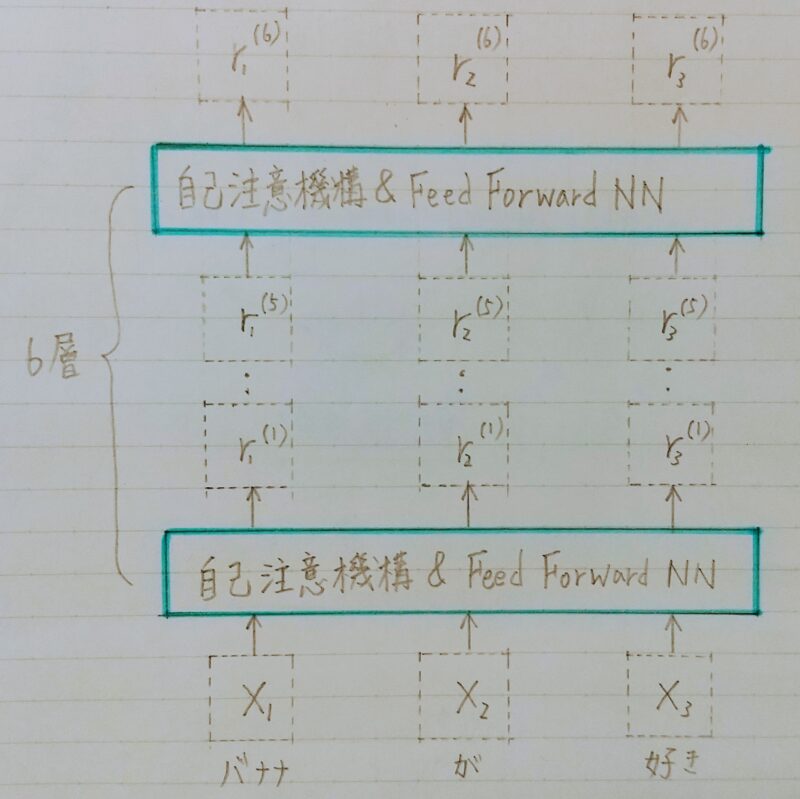 r₁⁽⁶⁾ r₂⁽⁶⁾ r₃⁽⁶⁾
自己注意機構 & Feed Forward NN
r₁⁽⁵⁾ r₂⁽⁵⁾ r₃⁽⁵⁾
6層
⋮ ⋮ ⋮
r₁⁽¹⁾ r₂⁽¹⁾ r₃⁽¹⁾
自己注意機構 & Feed Forward NN
X₁ X₂ X₃
バナナ が 好き